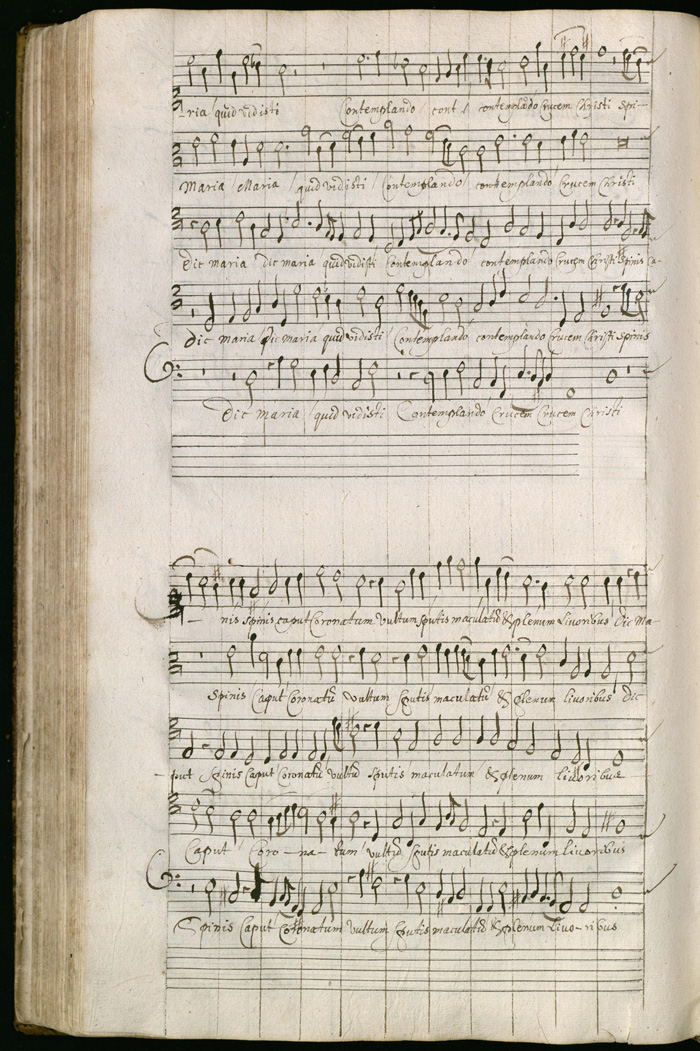 -ria quid vidisti Contemplando cont / contemplādo Crucem Christi spi-
Maria Maria quid vidisti Contemplando contemplando Crucem Christi
Dic maria dic maria quid vidisti Contemplando contemplando Crucem Christi Spinis Ca-
Dic maria Dic maria quid vidisti Contemplando contemplando Crucem Christi spinis
Dic Maria quid vidisti Contemplando Crucem Crucem Christi
- nis spinis caput Coronatum vultum sputis maculatū & plenum livoribus Dic Ma-
Spinis Caput Coronatū vultum sputis maculatū & plenum livoribus Dic
- put Spinis Caput Coronatū vultū sputis maculatum & plenum livoribus
Caput Coro - na - tum vultū sputis maculatū & plenum livoribus
Spinis Caput Coronatum vultum sputis maculatū & plenum Livo - ribus